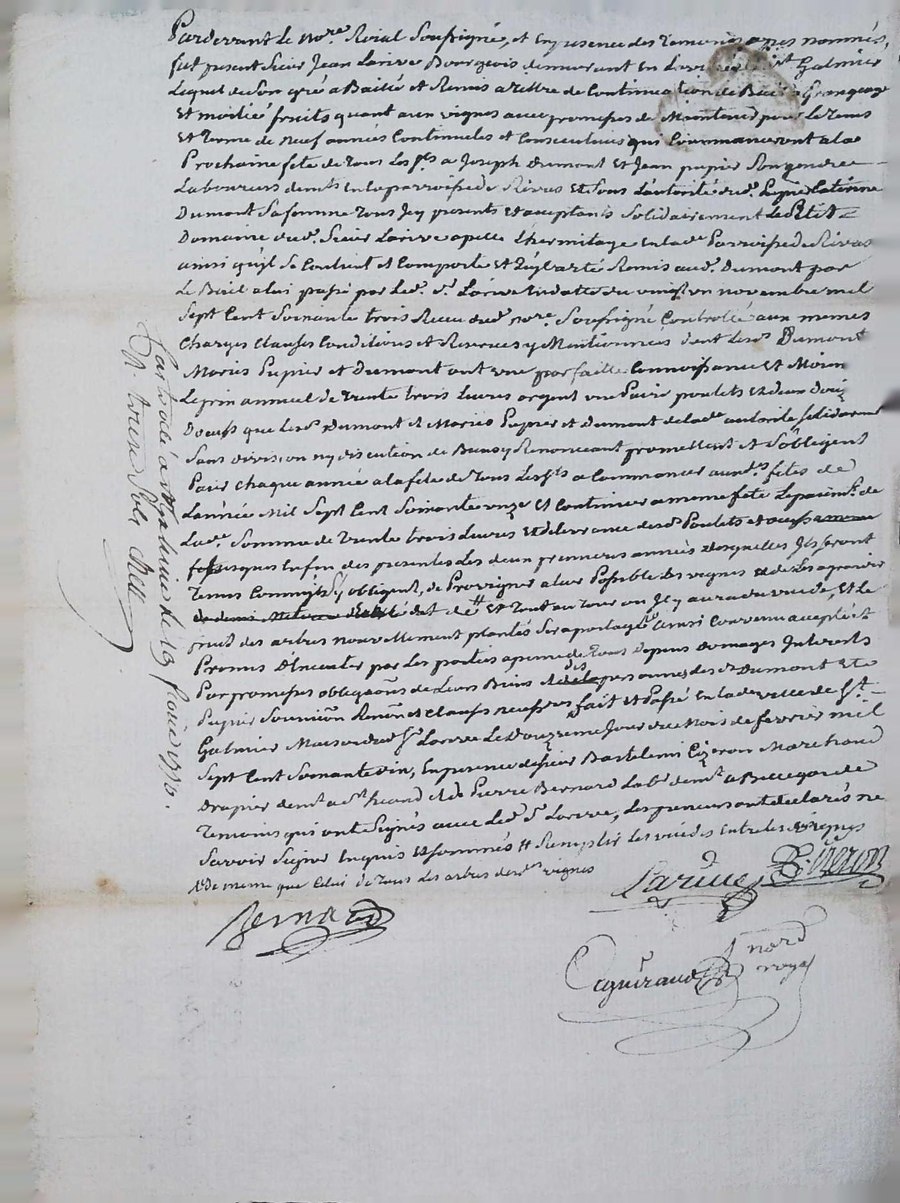 Pardevant Le no.re Roial Soussigné, et En presence des Temoins apres nommés,
fut present Sieur Jean Larive Bourgeois demeurant En La ville de S.t Galmier
Lequel de Son gré a Bailié et Remis a tittre de Continuation de Bail a Grangeage
Et moitié fruits quant aux vignes avec promesses de Maintenir pour Le Tems
Et Terme de neuf années Continuelles et Consecutives qui Commanceront a La
Prochaine fete de Tous Les S.ts a Joseph Dumont Et Jean pupier Son gendre
Laboureurs dem.ts En La parroisse de Rivas Et Sous L'autorité dud. Pupier Caterine
Dumont Sa femme Tous Icy presents Et acceptants Solidairement Le Petit
Domaine dud. Sieur Larive apellé L'hermitage En lad.e Parroisse de Rivas
ainsi quil Se Contient et Comporte et qu'il a Eté Remis aud. Dumont par
Le Bail a lui passé par Led. S.r Larive En datte du vingt un novembre mil
Sept Cent Soixante trois Recu dud. no.re Soussigné Controllé aux memes
Charges Clauses Conditions et Reserves y Mentionnées dont Lesd.s Dumont
Mariés Pupier et Dumont ont une parfaitte Connoissance Et Moien
Le prix annuel de Trente trois Livres argent une Paire poulets Et deux Douz.
Doeufs que Lesd.s Dumont et Mariés Pupier et Dumont de lad.e autorité Solidairement
Sans division ny discution de Biens y Renoncant promettent et S'obligent
Paier chaque année a La fete de Tous Les S.ts a Commancer aux d.s fetes de
L'année Mil Sept Cent Soixante onze Et Continuer a meme fete Le paiem.t de
Lad.e Somme de Trente trois Livres Et delivrance desd.s Poulets et oeufs
jusques En fin des presentes Les deux premieres années desquelles Ils seront
Tenus Comme Ils S'y obligent, de Provigner a leur Possible Les vignes
Et Tout au Tour ou Il y aura du vuide, Et Le
fruit des arbres nouvellement plantés Sera partagé ainsi Convenu accepté Et
Promis d'Executer par Les parties a peine de Tous Depens Domages Interets
Par promesses obligaõns de Leurs Biens des personnes des d.s Dumont Et
Pupier Soumiõn Renõn et clauses necessres fait et Passé En Lad.e ville de S.t
Galmier Maison dud. S.r Larive Le Douzieme Jour du Mois de fevrier mil
Sept Cent Soixante dix, En presence de Sieur Bartelemi Cizeron Marchand
Drapier dem.t a S.t heand Et de Pierre Bernard Lab.r dem.t a Bellegarde
Temoins qui ont Signés avec Led. S.r Larive, Les preneurs ont declarés ne
Savoir Signer Enquis Et Sommés # Remplir Les vuides Entre les
de meme que Celui de Tous Les arbres desd.s vignes
Larive B. Cizeron
Bernard
no.re
royal
Con.té a S.t Galmier Le 13 favrier 1770.
R. treize Sols